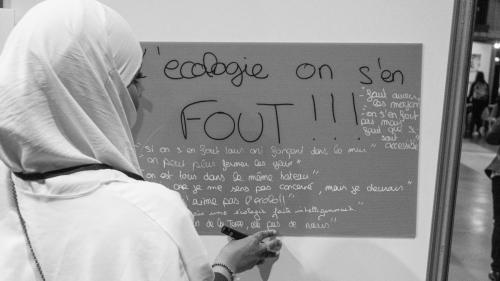 L'ecologie on s'en
FOUT !!!
"si on s'en fout tous on fonçant dans le mur"
"on peut plus fermer les yeux"
on est tous dans le même bateau"
que je me sens pas concerné, mais je devrais"
j'aime pas l'ecolo!!"
une ecologie faite intelligemment"
de la Terre, elle pas de nous"
- faut avoir
les moyens
- on s'en fout
pas mais
faut que ça
soit
accessible